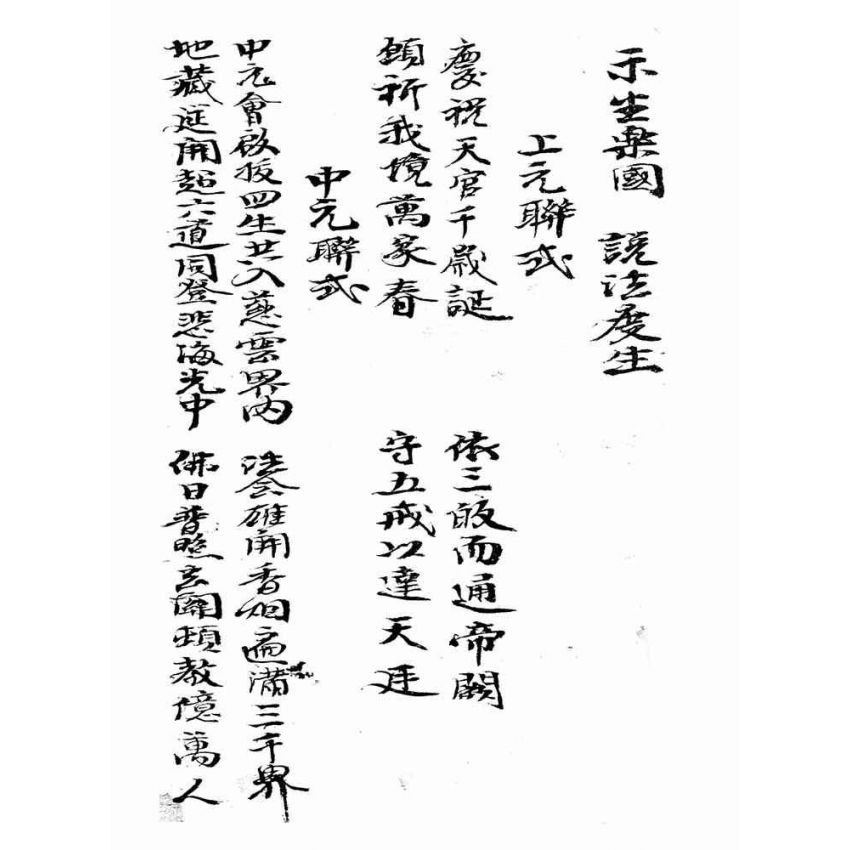 示生樂國 說法度生
上元聯式
慶祝天官千歲誕 依三皈而通帝闕
願祈我境萬家春 守五戒以達天廷
中元聯式
中元會啟拔四生共入慈雲界內 法會雄開香烟遍滿三千界
地藏筵開超六道同登悲海光中 佛日普照玄關頓教億萬人